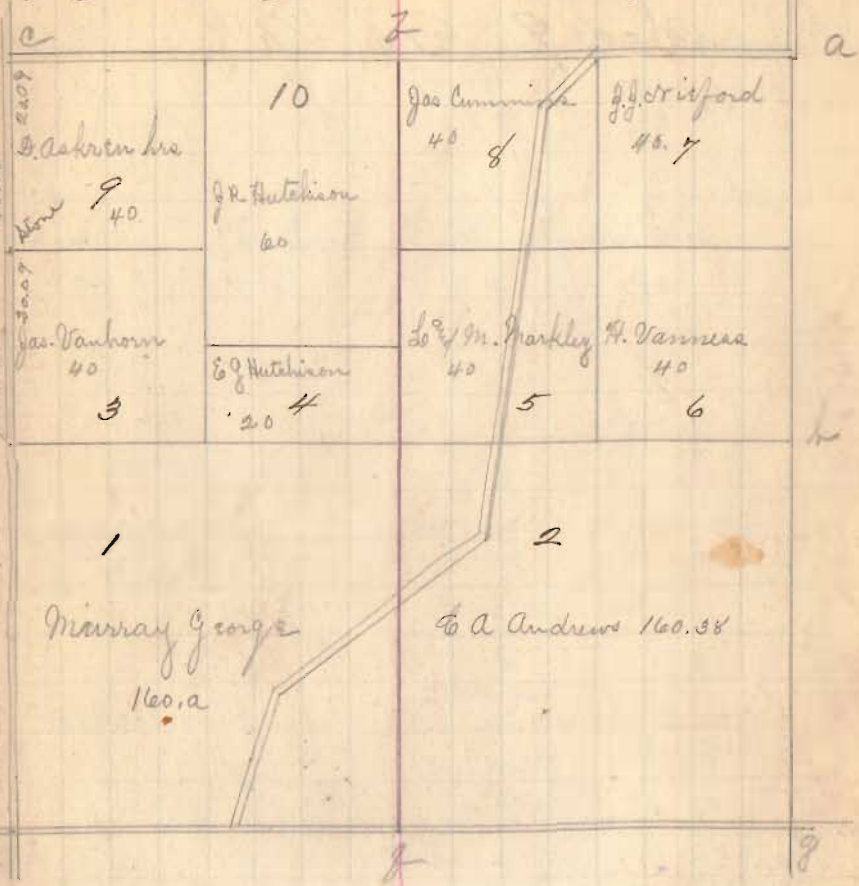 c
a
20.09
D. Askren hrs
9
40
Stone
10
J R Hutchison
60
Jas Cummins
40
8
40.
7
20.09
Jas. Vanhorn
40
3
E J Hutchison
20
4
M. Markley
40
5
H. Vanness
40
6
h
1
Murray George
160.a
2
E A Andrews 160.38
g